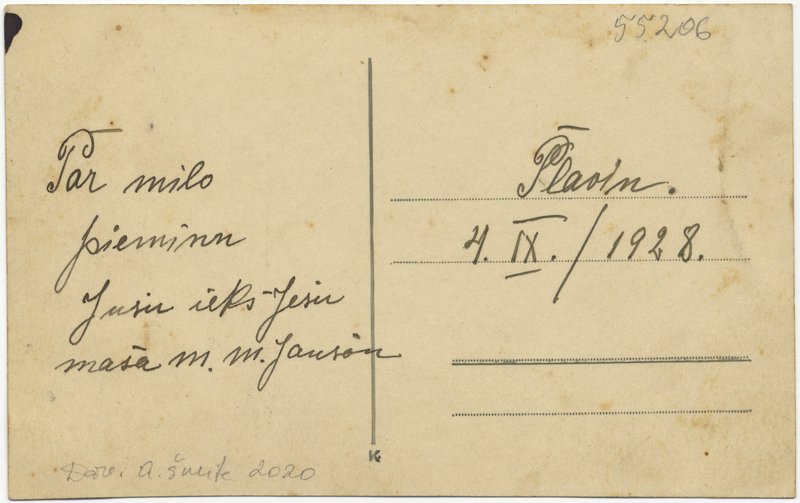 55206
Par milo
pieminu
Jusu ieks Jesu
masa M. M. Janson
Plavin.
4. IX. / 1928.
K
Dāv. A. Šmite 2020